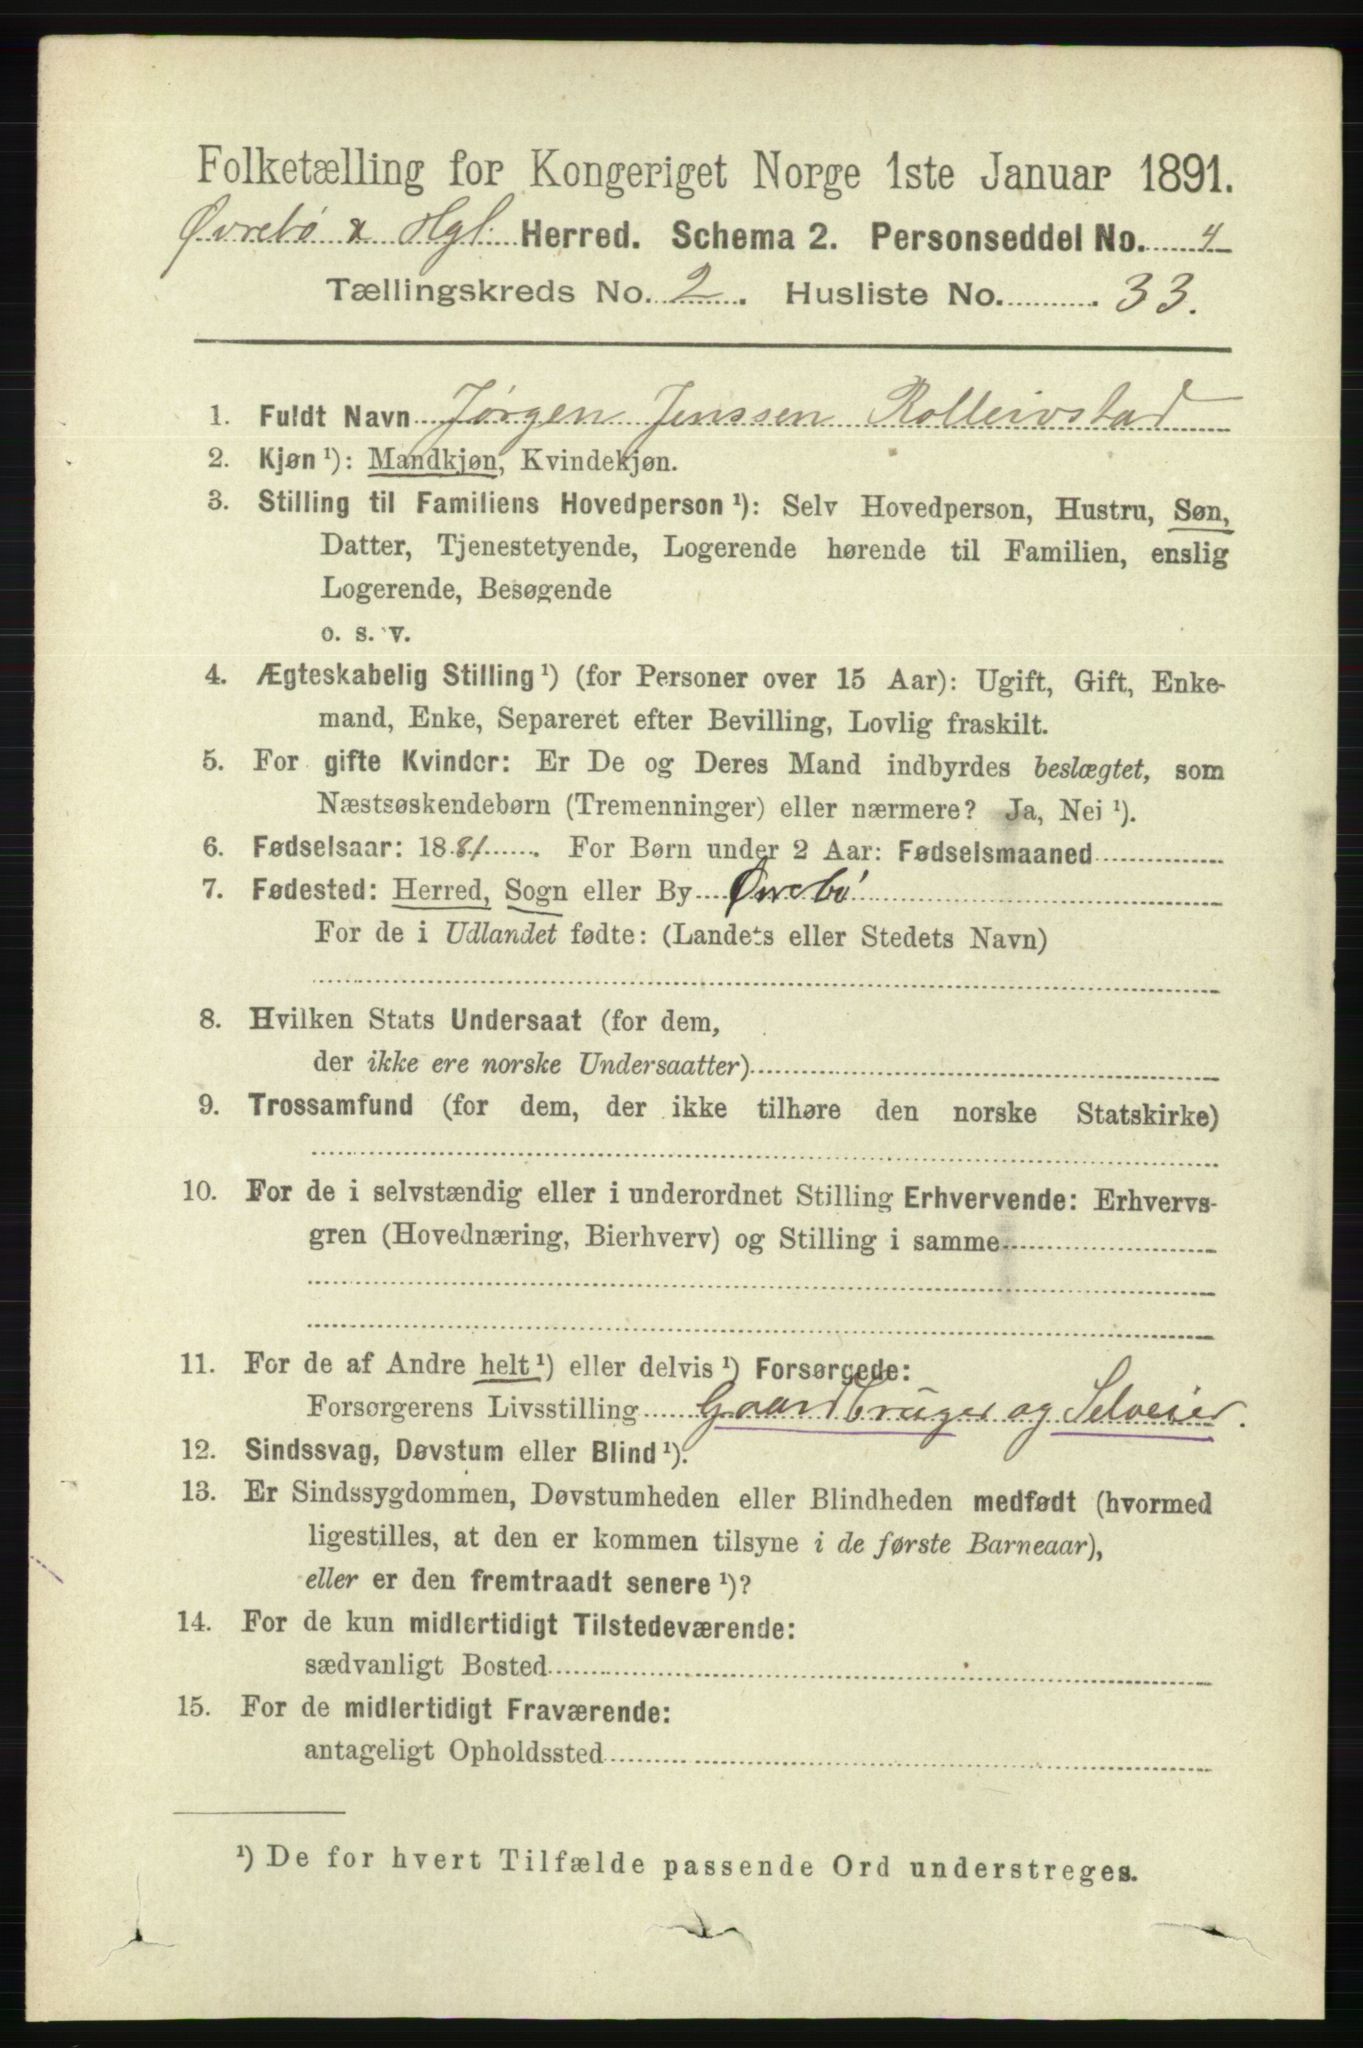 Folketælling for Kongeriget Norge 1ste Januar 1891.
Øvrebö & Hgl. Herred. Schema 2. Personseddel No. 4
Tællingskreds No. 2. Husliste No. 33.
1. Fuldt Navn Jørgen Jenssen Rolleivstad
2. Kjøn ¹): Mandkjøn, Kvindekjøn.
3. Stilling til Familiens Hovedperson ¹): Selv Hovedperson, Hustru, Søn,
Datter, Tjenestetyende, Logerende hørende til Familien, enslig
Logerende, Besøgende
o. s. v.
4. Ægteskabelig Stilling ¹) (for Personer over 15 Aar): Ugift, Gift, Enke-
mand, Enke, Separeret efter Bevilling, Lovlig fraskilt.
5. For gifte Kvinder: Er De og Deres Mand indbyrdes beslægtet, som
Næstsøskendebørn (Tremenninger) eller nærmere? Ja, Nei ¹).
6. Fødselsaar: 1881. For Børn under 2 Aar: Fødselsmaaned
7. Fødested: Herred, Sogn eller By Øvrebö
For de i Udlandet fødte: (Landets eller Stedets Navn)
8. Hvilken Stats Undersaat (for dem,
der ikke ere norske Undersaatter)
9. Trossamfund (for dem, der ikke tilhøre den norske Statskirke)
10. For de i selvstændig eller i underordnet Stilling Erhvervende: Erhvervs-
gren (Hovednæring, Bierhverv) og Stilling i samme
11. For de af Andre helt ¹) eller delvis ¹) Forsørgede:
Forsørgerens Livsstilling Gaardbruger og Selveier.
12. Sindssvag, Døvstum eller Blind ¹).
13. Er Sindssygdommen, Døvstumheden eller Blindheden medfødt (hvormed
ligestilles, at den er kommen tilsyne i de første Barneaar),
eller er den fremtraadt senere ¹)?
14. For de kun midlertidigt Tilstedeværende:
sædvanligt Bosted
15. For de midlertidigt Fraværende:
antageligt Opholdssted
¹) De for hvert Tilfælde passende Ord understreges.